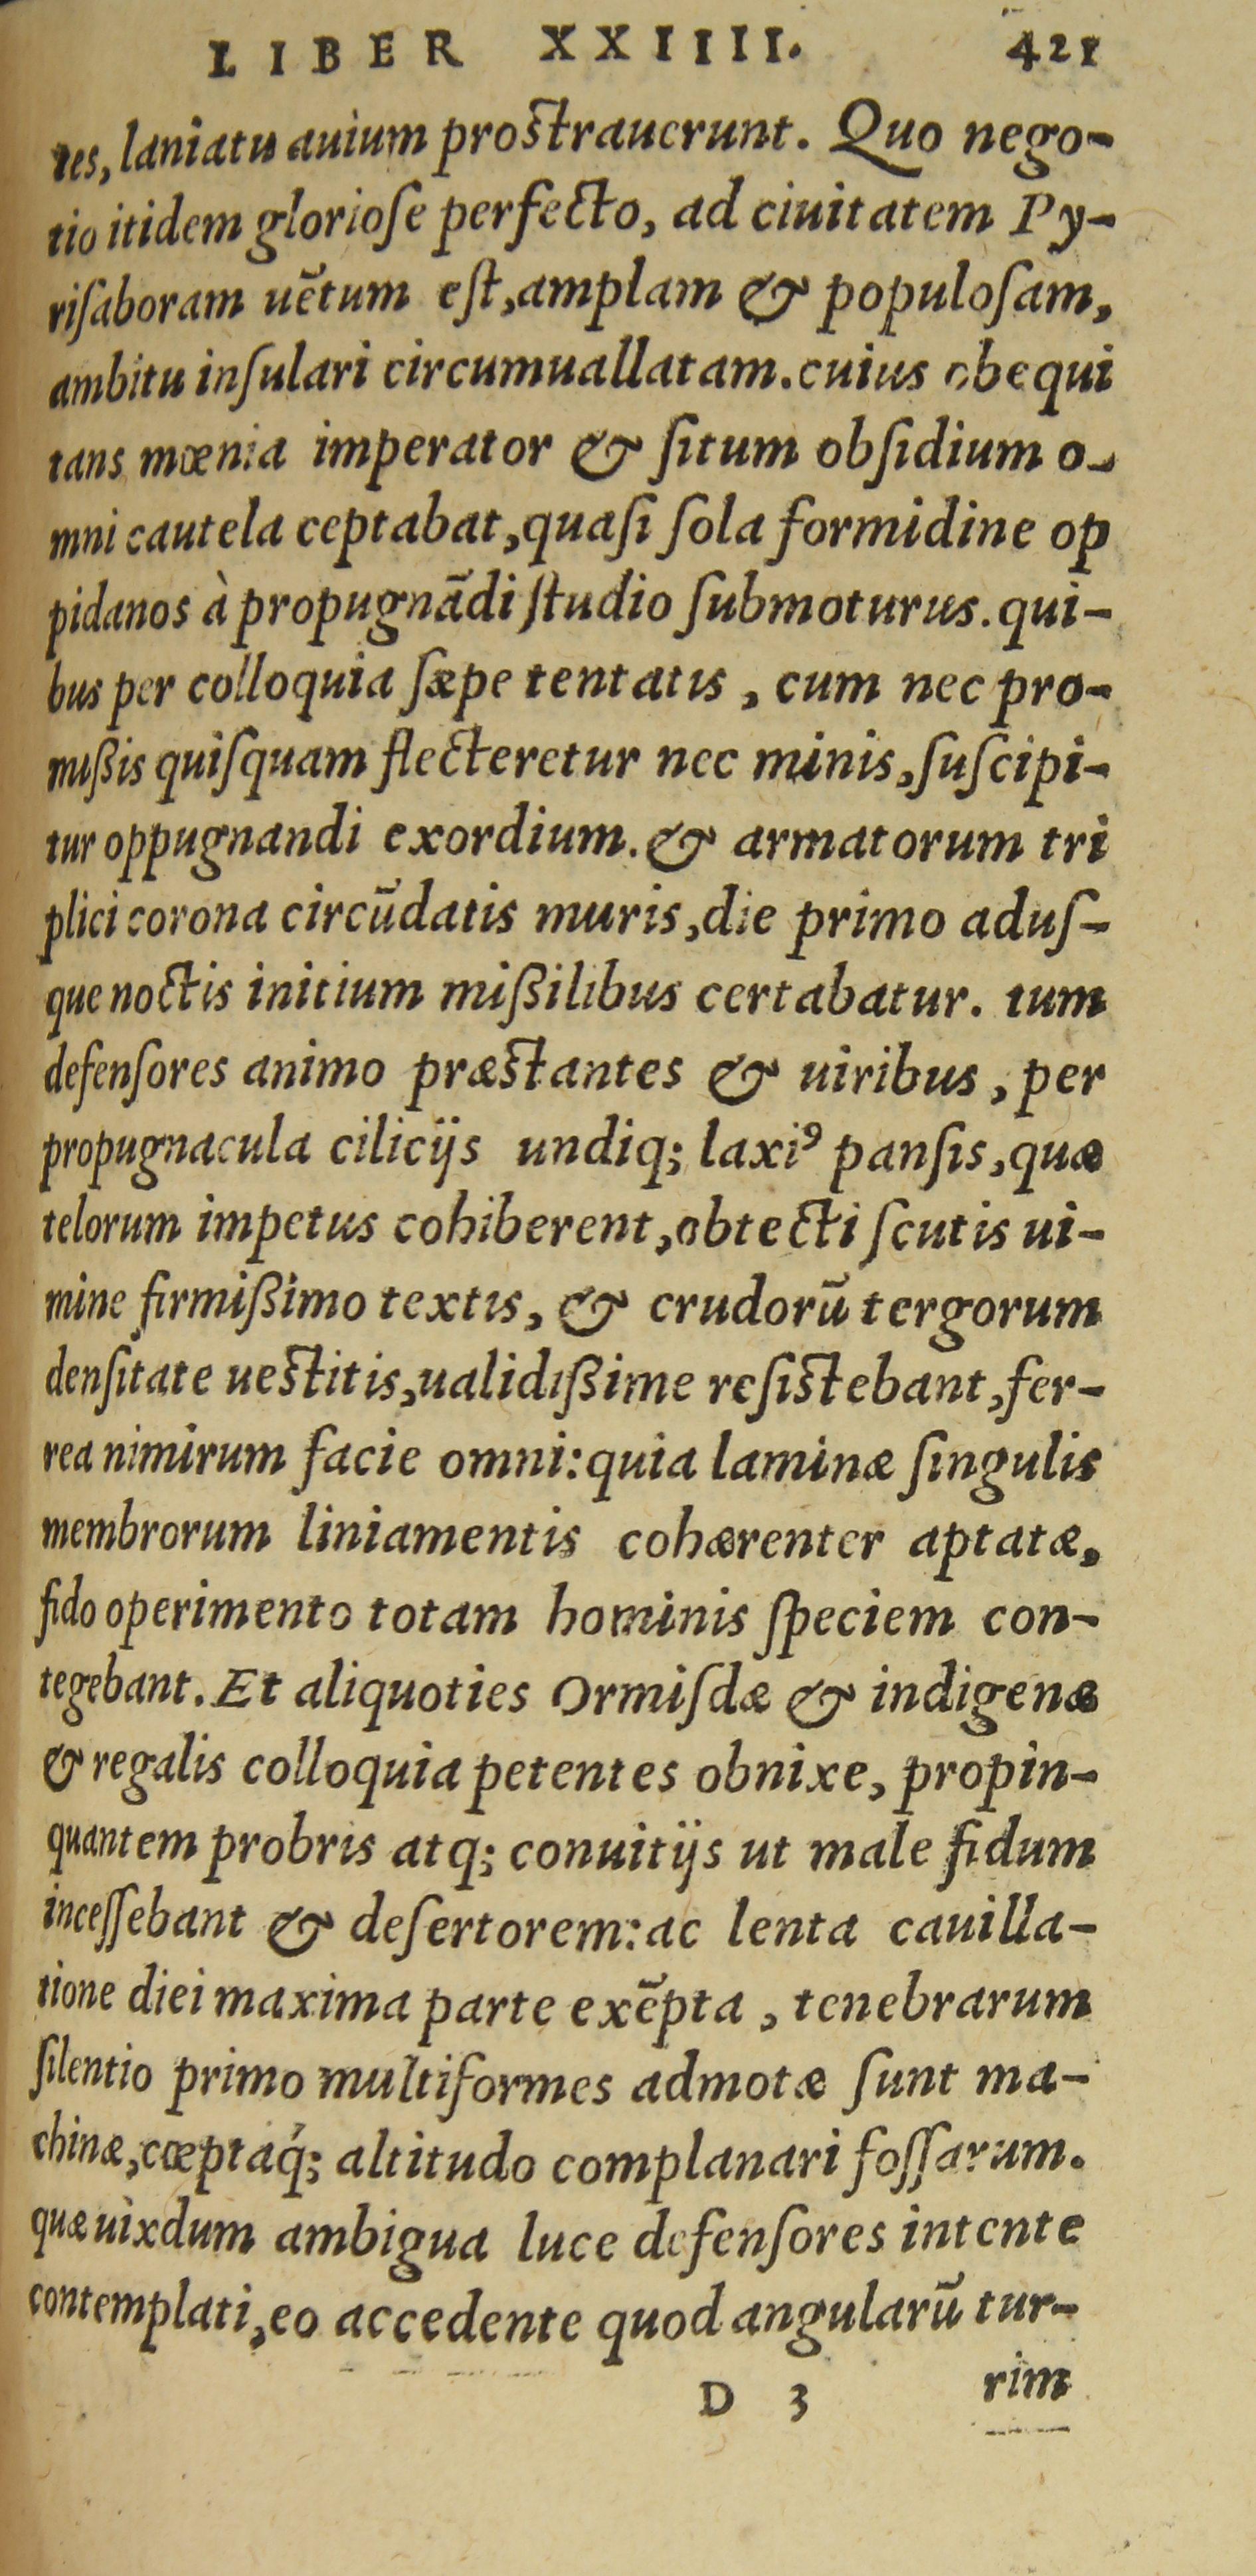 LIBER XXIIII. 421
tes, laniatu auium prostrauerunt. Quo nego-
tio itidem glorioſe perfecto, ad ciuitatem Py-
riſaboram uētum eſt, amplam & populoſam,
ambitu inſulari circumuallatam. cuius obequi
tans mœnia imperator & ſitum obſidium o-
mni cautela ceptabat, quaſi ſola formidine op
pidanos à propugnādi ſtudio ſubmoturus. qui-
bus per colloquia ſæpe tentatis, cum nec pro-
mißis quiſquam flecteretur nec minis, ſuſcipi-
tur oppugnandi exordium. & armatorum tri
plici corona circūdatis muris, die primo aduſ-
que noctis initium mißilibus certabatur. tum
defenſores animo præstantes & uiribus, per
propugnacula cilicijs undiq; laxiꝰ panſis, quæ
telorum impetus cohiberent, obtecti ſcutis ui-
mine firmißimo textis, & crudorū tergorum
denſitate uestitis, ualidißime reſistebant, fer-
rea nimirum facie omni: quia laminæ ſingulis
membrorum liniamentis cohærenter aptatæ,
fido operimento totam hominis ſpeciem con-
tegebant. Et aliquoties Ormiſdæ & indigenæ
& regalis colloquia petentes obnixe, propin-
quantem probris atq; conuitijs ut male fidum
inceſſebant & deſertorem: ac lenta cauilla-
tione diei maxima parte exēpta, tenebrarum
ſilentio primo multiformes admotæ ſunt ma-
chinæ, cœptáq́; altitudo complanari foſſarum.
quæ uixdum ambigua luce defenſores intente
contemplati, eo accedente quod angularū tur-
D 3 rim